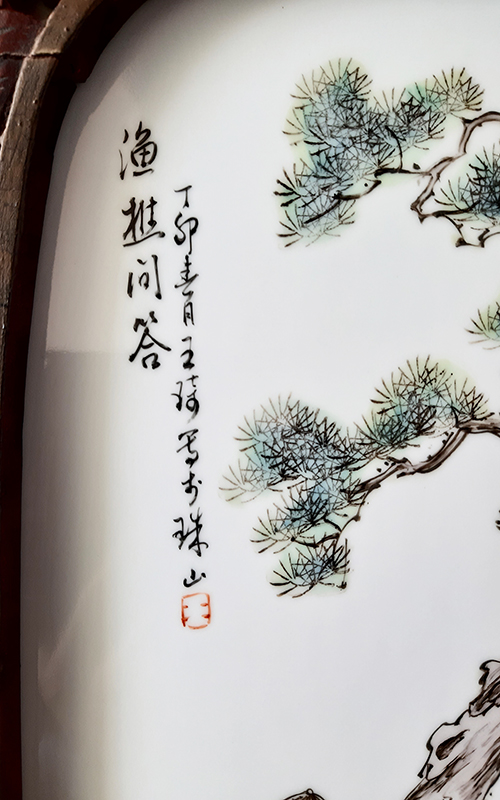 渔樵问答
丁卯春月王琦写於珠山